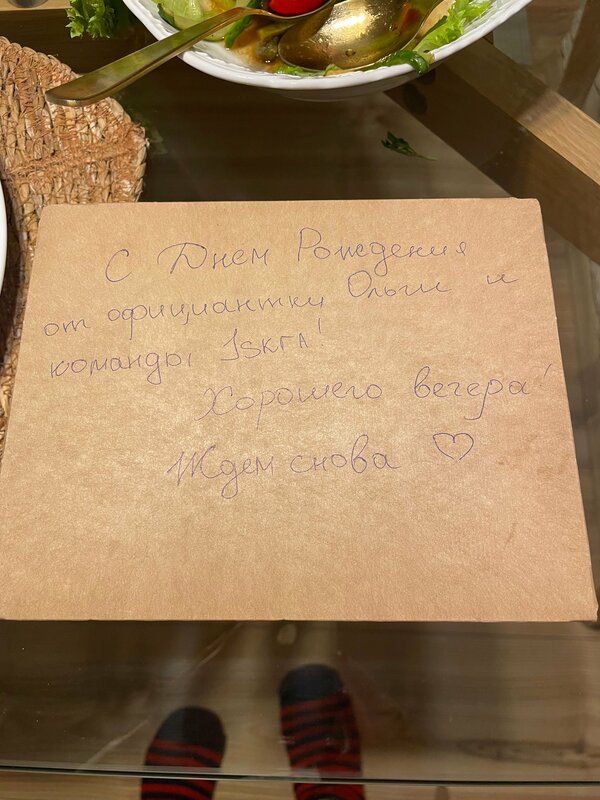 С Днем Рождения
от официантки Ольги и
команды
Хорошего вечера!
Ждем снова ♡